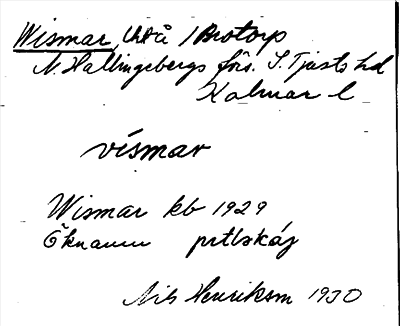 Wismar, U / Brotorp
N. Hallingebergs förs. S. Tjusts hd
Kalmar l
vismar
Wismar kb 1929
Öknamn
Nils Henriksm 1930